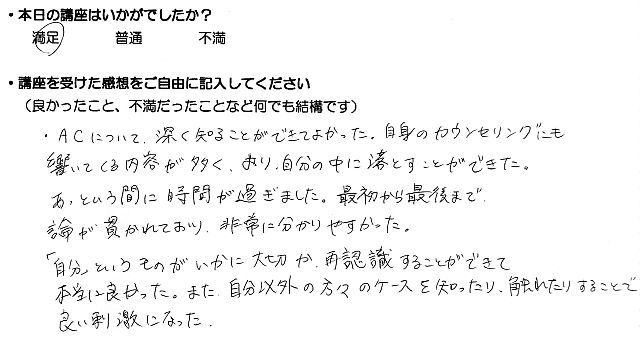 ・本日の講座はいかがでしたか？
満足 普通 不満
・講座を受けた感想をご自由に記入してください
（良かったこと、不満だったことなど何でも結構です）
・ACについて、深く知ることができてよかった。自身のカウンセリングにも
響いてくる内容が多く、より、自分の中に落とすことができた。
あっという間に時間が過ぎました。最初から最後まで、
論が貫かれており、非常に分かりやすかった。
「自分」というものがいかに大切か、再認識することができて
本当に良かった。また、自分以外の方々のケースを知ったり、触れたりすることで
良い刺激になった。